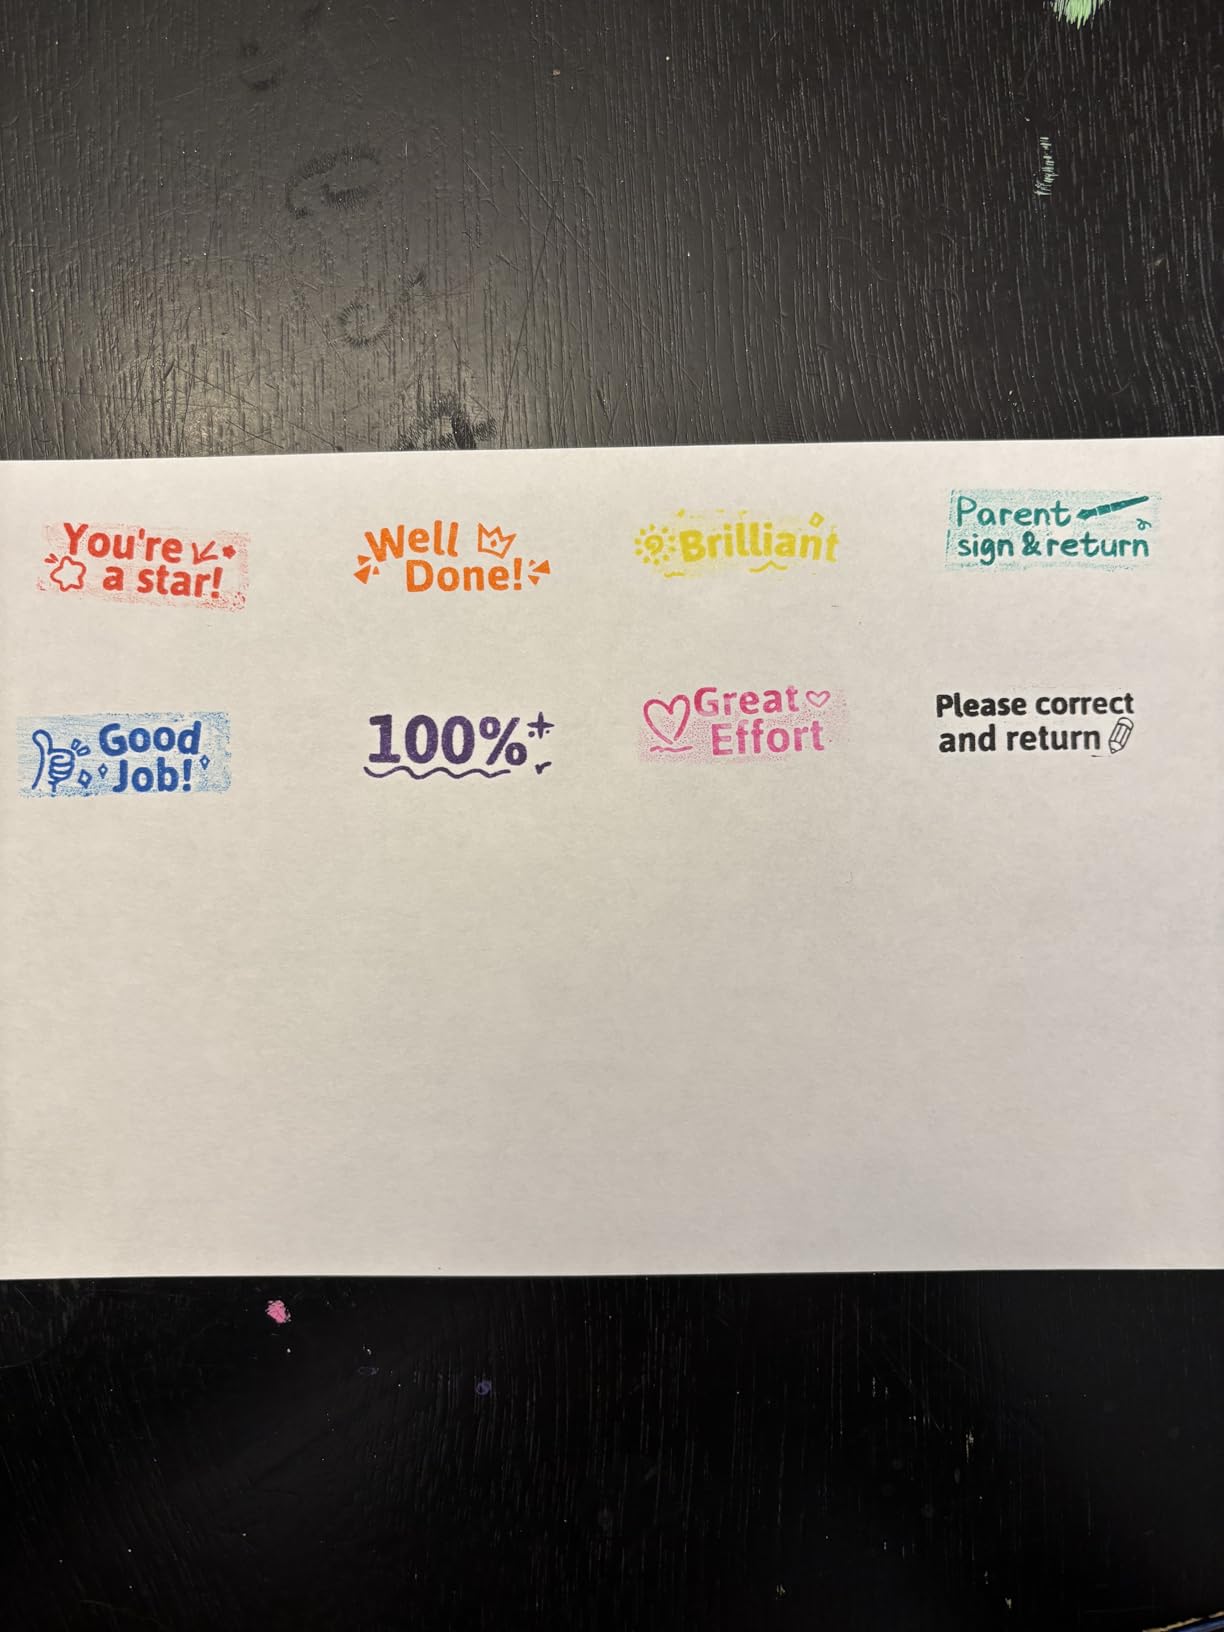 You're
a star!
Well
Done!
Brilliant
Parent
sign & return
Good
Job!
100%+
Great
Effort
Please correct
and return